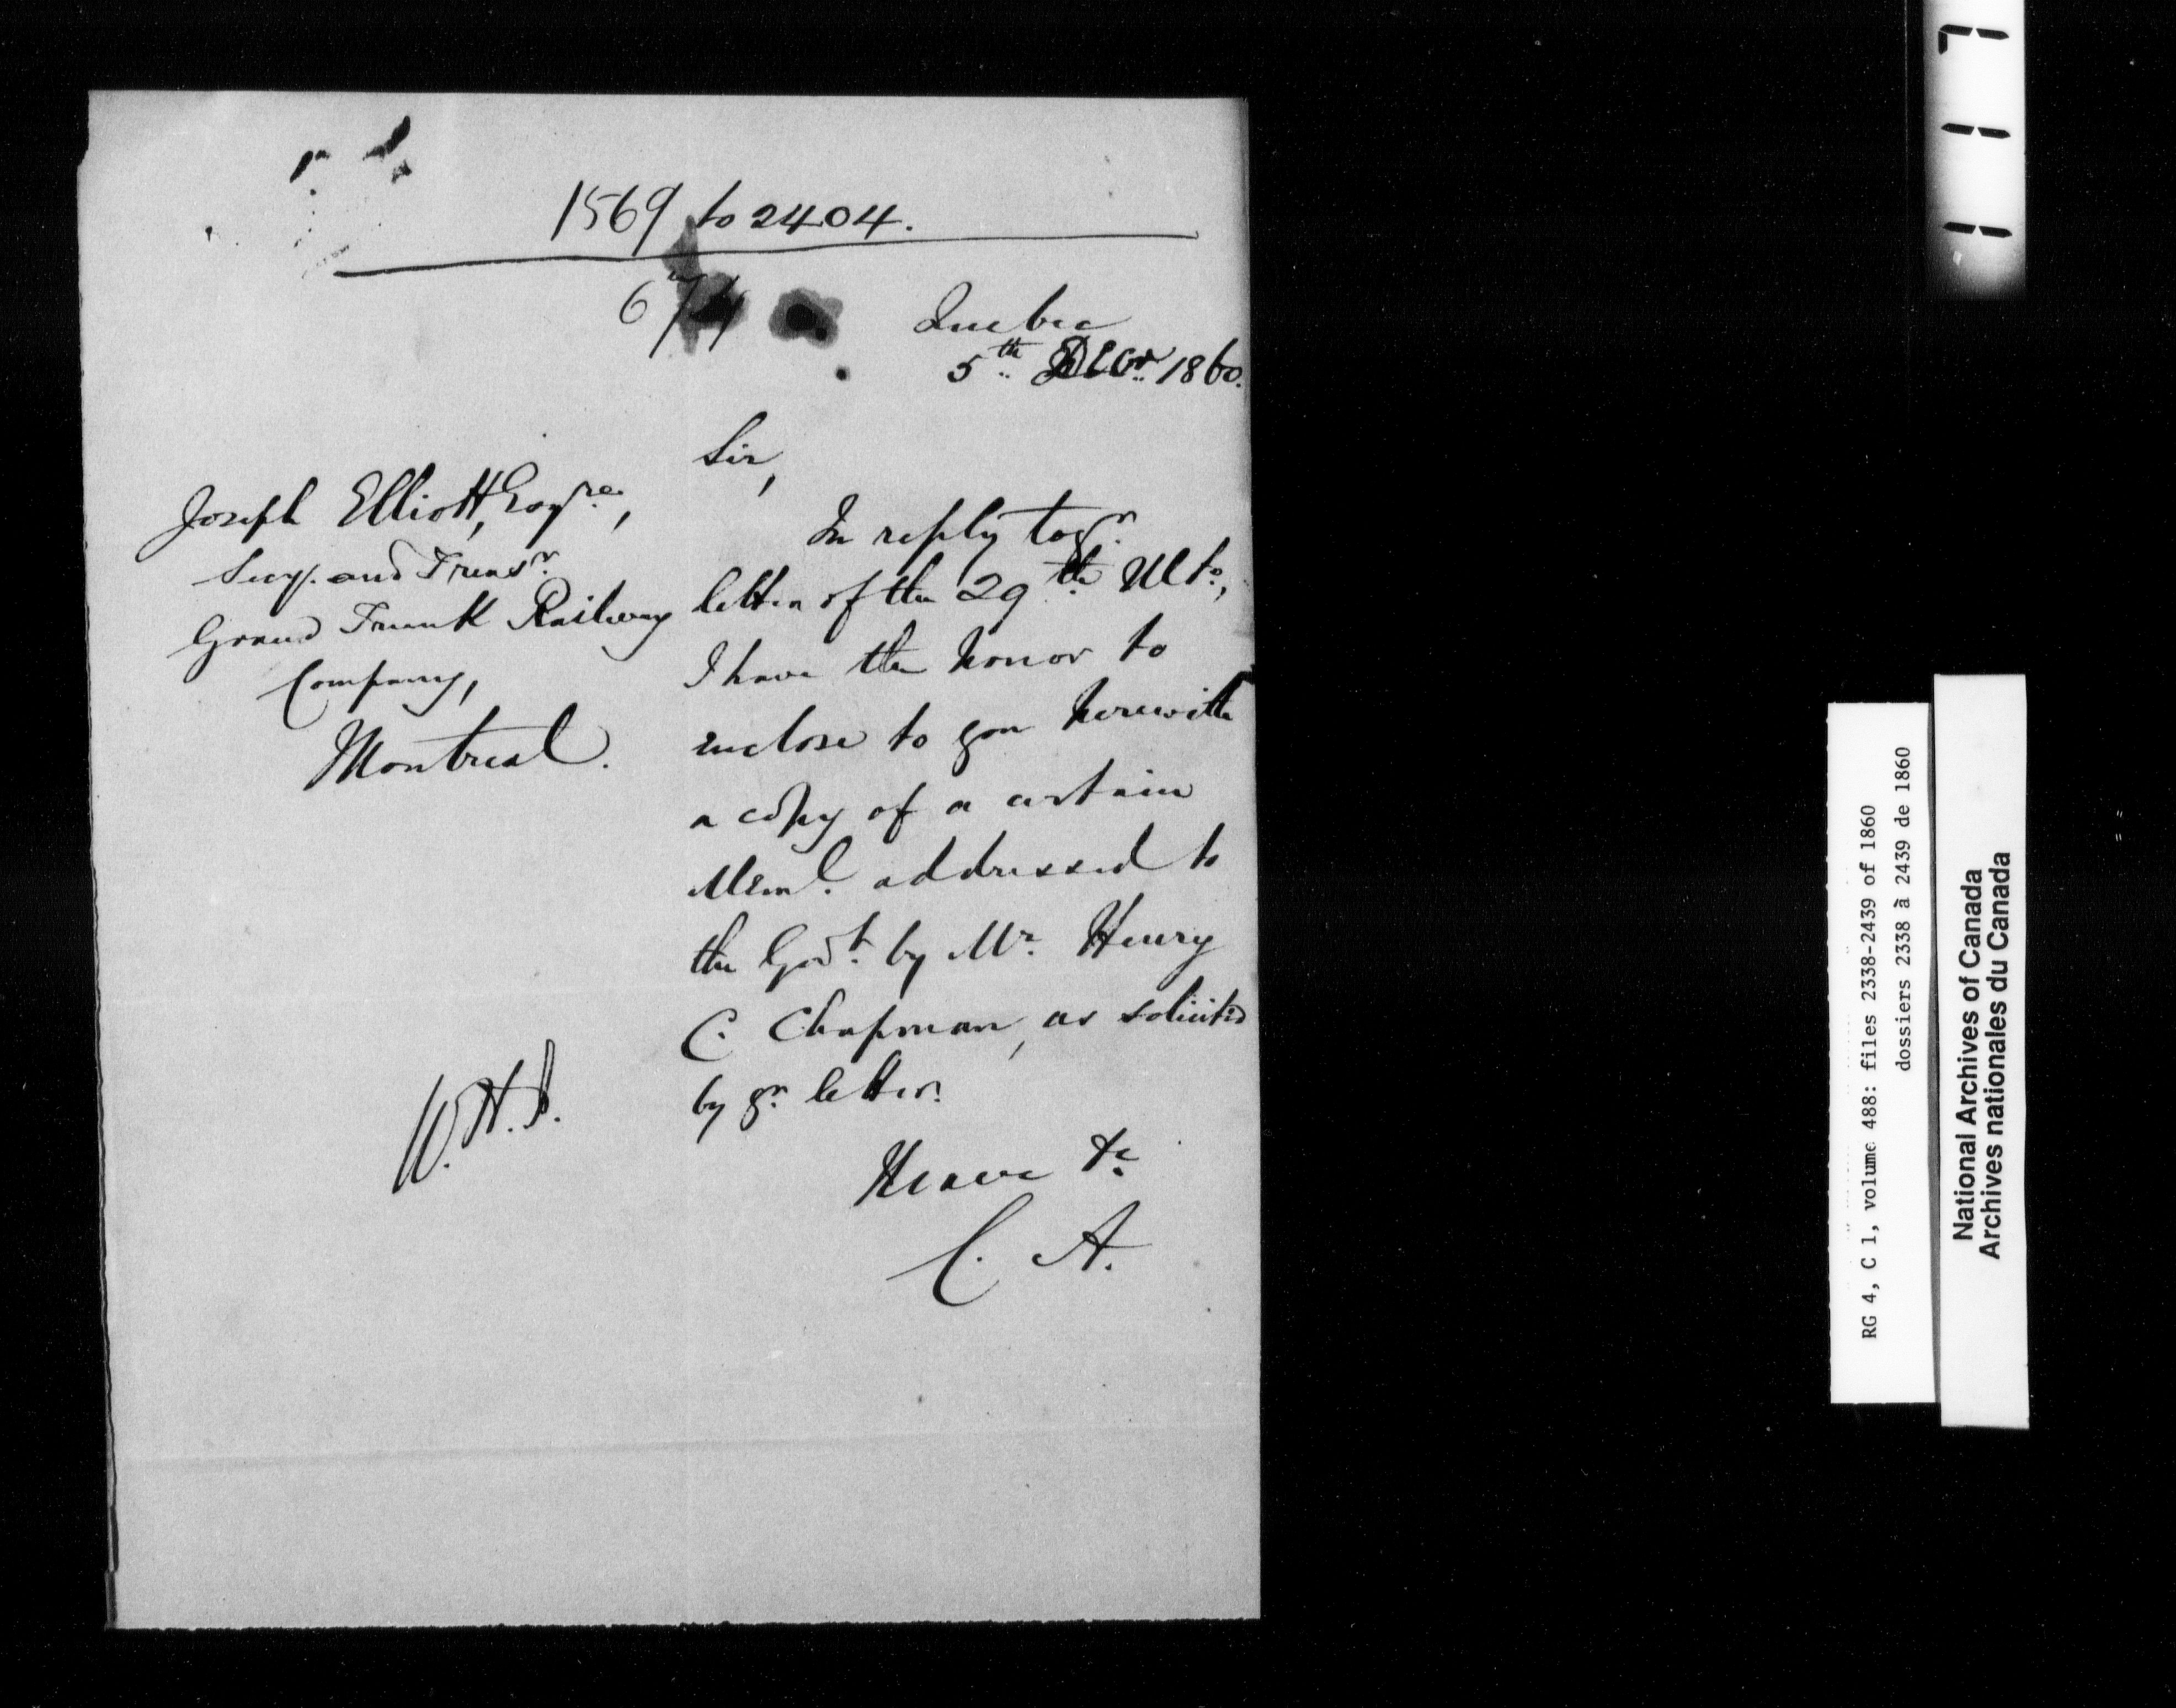 1569 to 2404.
Quebec
5th Decr. 1860.
Sir,
Joseph Elliott, Esqre.,
Secy. and Treasr.
Grand Trunk Railway
Company,
Montreal.
In reply to yr.
letter of the 29th Ulto.,
I have the honor to
enclose to you herewith
a copy of a certain
Meml. addressed to
the Govt. by Mr. Henry
C. Chapman, as solicited
by yr. letter.
I have &c.
C. A.
W. H. J.
1117
RG 4, C 1, volume 488: files 2338-2439 of 1860
dossiers 2338 à 2439 de 1860
National Archives of Canada
Archives nationales du Canada